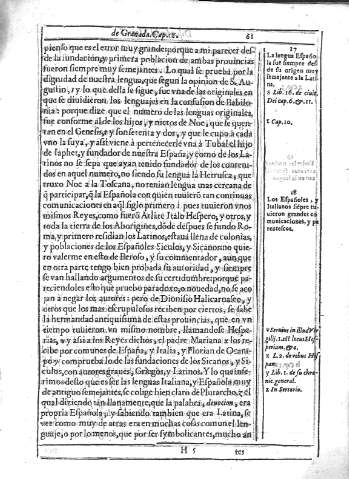 de Granada. Cap. 18. 61
pienso que es el error muy grande: porque a mi parecer desde
la fundacion y primera poblacion de ambas provincias
fueron siempre muy semejantes. Lo qual se prueva por la
dignidad de nuestra lengua, que segun la opinion de S. Augustin,
r y lo que della se sigue, fue vna de las originales en
que se diuidieron los lenguajes en la confusion de Babilonia:
porque dize que el numero de las lenguas originales,
fue conforme al de los hijos, y nietos de Noe, que se quentan
en el Genesis, s y son setenta y dos, y que le cupo à cada
vno la suya, y assi viene à pertenecerle vna à Tubal el hijo
de Iaphet, y fundador de nuestra España; y como de los Latinos
no se sepa que ayan tenido fundador de los contenidos
en aquel numero, no siendo su lengua la Hetrusca, que
truxo Noe a la Toscana, no tenian lengua mas cercana de
q̃ participar, q̃ la Española con quien tuuierõ tan continuas
comunicaciones en aql̃ siglo primero: pues tuuieron vnos
mismos Reyes, como fuerõ Atlãte Italo Hespero, y otros, y
toda la tierra de los Aborigines, dõde despues se fundo Roma,
y primero residian los Latinos, estaua llena de colonias,
y poblaciones de los Españoles Siculos, y Sicanos: no quiero
valerme en esto de Beroso, y su commentador, aunque
en otra parte tengo bien probada su autoridad, y siempre
se van hallando argumentos de su certidumbre: porque pareciendoles
esto que pruebo paradoxo, o nouedad, no se acojan
a negar los autores: pero de Dionisio Halicarnaseo, y
otros que los mas escrupulosos reciben por ciertos, se sabe
la hermandad antiquissima de estas prouincias, que en vn
tiempo tuuieron vn mismo nombre, llamandose Hesperias,
v y assi a los Reyes dichos, el padre Mariana x los recibe
por comunes de España, y Italia, y Florian de Ocampo
y comprueba lo de las fundaciones de los Sicanos, y Siculos,
con autores graues, Griegos, y Latinos. Y lo que inferimos
desto que es ser las lenguas Italiana, y Española muy
de antiguo semejantes, se colige bien claro de Plutarcho, z el
qual diziendo tan llanamente, que la palabra, deuocion, era
propria Española, y sabiendo tambien que era Latina, se
vee como muy de atras era en muchas cosas comun el lenguaje,
o por lo menos, que por ser symbolicantes, mucho an
H 5 tes
17
La lengua Española
fue siempre desde
su origen muy
semejante a la Latina.
s Lib. 16. de ciuit.
Dei cap. 6. & 11.
t Cap. 10.
18
Los Españoles, y
Italianos siempre tuuieron
grandes comunicaciones,
y parentescos.
v Seruius in illud Virgilij.
Est locus Hesperiam,
&c.
x L. 2. de rebus Hispan.
y Lib. 1. de su chronic.
general.
z In Sertorio.